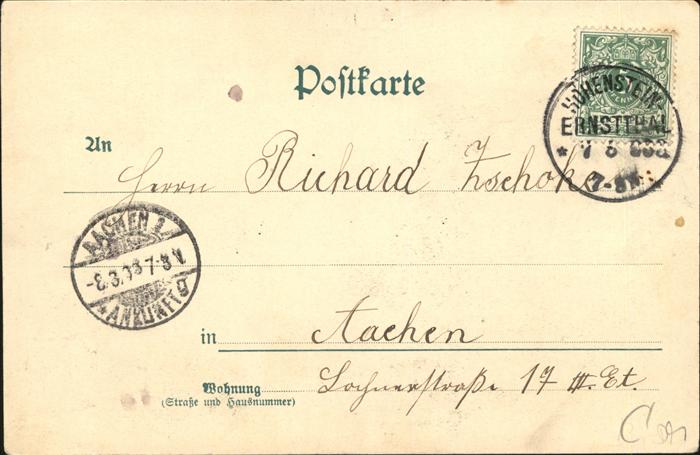 Postkarte
HOHENSTEIN-
ERNSTTHAL
An
Herrn Richard Zschoke
7-8N.
AACHEN 1
-8.3.98 7-8V.
ANKUNFT
in Aachen
Wohnung
(Straße und Hausnummer)
Lochnerstraße 17 III. Et.